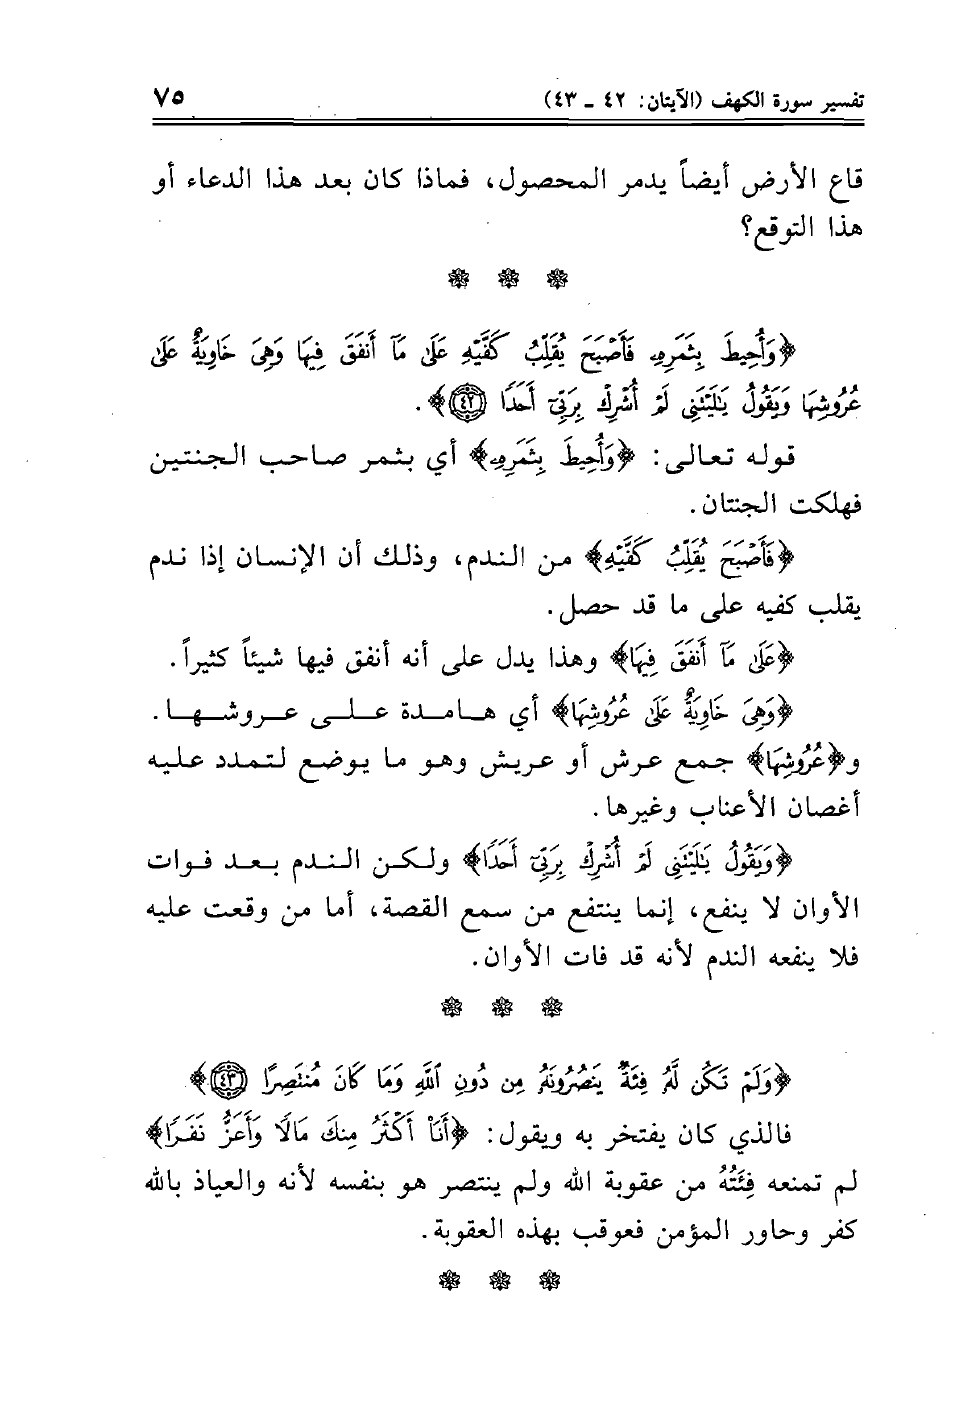 تفسير سورة الكهف (الآيتان: ٤٢ - ٤٣) ٧٥
قاع الأرض أيضاً يدمر المحصول، فماذا كان بعد هذا الدعاء أو
هذا التوقع؟
﴿وَأُحِيطَ بِثَمَرِهِۦ فَأَصْبَحَ يُقَلِّبُ كَفَّيْهِ عَلَىٰ مَآ أَنفَقَ فِيهَا وَهِىَ خَاوِيَةٌ عَلَىٰ
عُرُوشِهَا وَيَقُولُ يَٰلَيْتَنِى لَمْ أُشْرِكْ بِرَبِّىٓ أَحَدًا ٤٢﴾.
قوله تعالى: ﴿وَأُحِيطَ بِثَمَرِهِۦ﴾ أي بثمر صاحب الجنتين
فهلكت الجنتان.
﴿فَأَصْبَحَ يُقَلِّبُ كَفَّيْهِ﴾ من الندم، وذلك أن الإنسان إذا ندم
يقلب كفيه على ما قد حصل.
﴿عَلَىٰ مَآ أَنفَقَ فِيهَا﴾ وهذا يدل على أنه أنفق فيها شيئاً كثيراً.
﴿وَهِىَ خَاوِيَةٌ عَلَىٰ عُرُوشِهَا﴾ أي هامدة على عروشها.
و﴿عُرُوشِهَا﴾ جمع عرش أو عريش وهو ما يوضع لتمدد عليه
أغصان الأعناب وغيرها.
﴿وَيَقُولُ يَٰلَيْتَنِى لَمْ أُشْرِكْ بِرَبِّىٓ أَحَدًا﴾ ولكن الندم بعد فوات
الأوان لا ينفع، إنما ينتفع من سمع القصة، أما من وقعت عليه
فلا ينفعه الندم لأنه قد فات الأوان.
﴿وَلَمْ تَكُن لَّهُۥ فِئَةٌ يَنصُرُونَهُۥ مِن دُونِ ٱللَّهِ وَمَا كَانَ مُنتَصِرًا ٤٣﴾
فالذي كان يفتخر به ويقول: ﴿أَنَا۠ أَكْثَرُ مِنكَ مَالًا وَأَعَزُّ نَفَرًا﴾
لم تمنعه فِئَتُهُ من عقوبة الله ولم ينتصر هو بنفسه لأنه والعياذ بالله
كفر وحاور المؤمن فعوقب بهذه العقوبة.